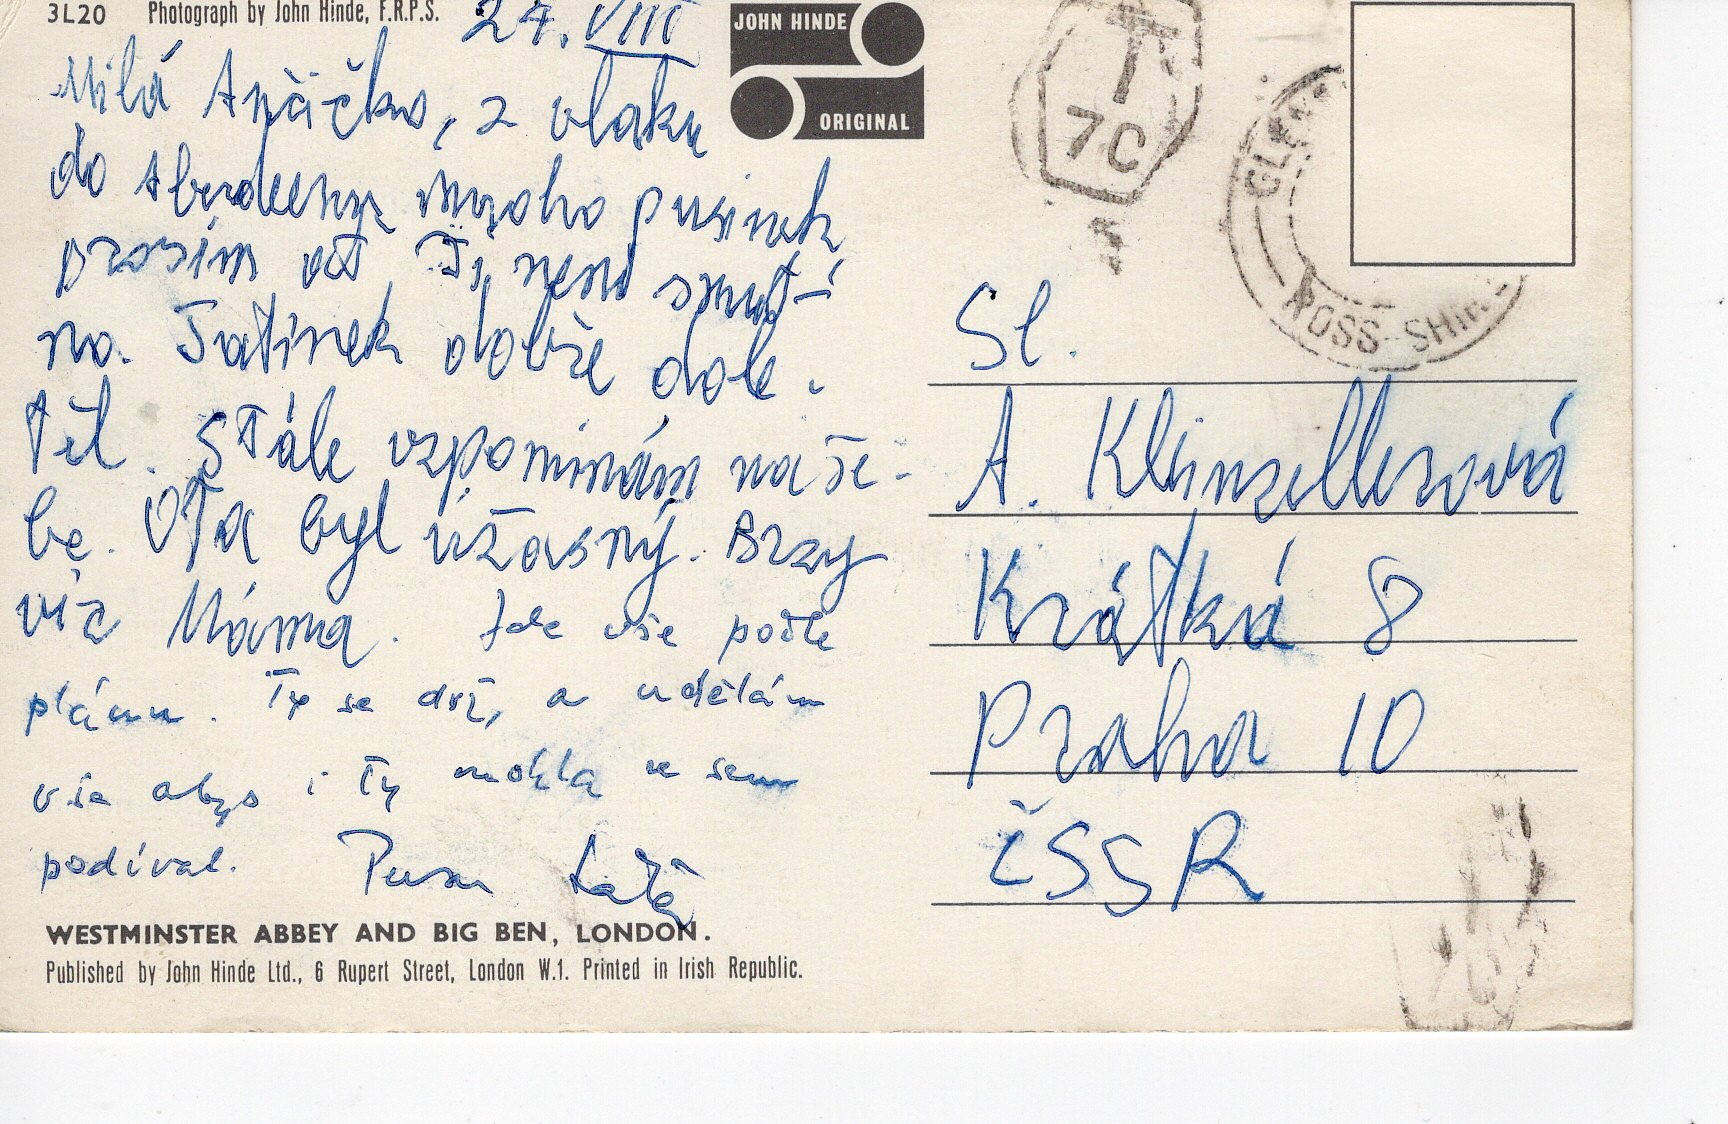 3L20 Photograph by John Hinde, F.R.P.S.
24. VIII
JOHN HINDE
ORIGINAL
T
70
ROSS-SHIR
Milá Ančičko, z vlaku
do Aberdeenu mnoho pusinek
prosím ať Ti není smut-
no. Tatínek dobře dole-
těl. Stále vzpomínám na Te-
be. Ota byl úžasný. Brzy
víc Máma. Jde vše podle
plánu. Ty se drž, a udělám
vše abys i Ty mohla se sem
podívat. Pusu Táta
WESTMINSTER ABBEY AND BIG BEN, LONDON.
Published by John Hinde Ltd., 6 Rupert Street, London W.1. Printed in Irish Republic.
Sl.
A. Klinzellerová
Krátká 8
Praha 10
ČSSR